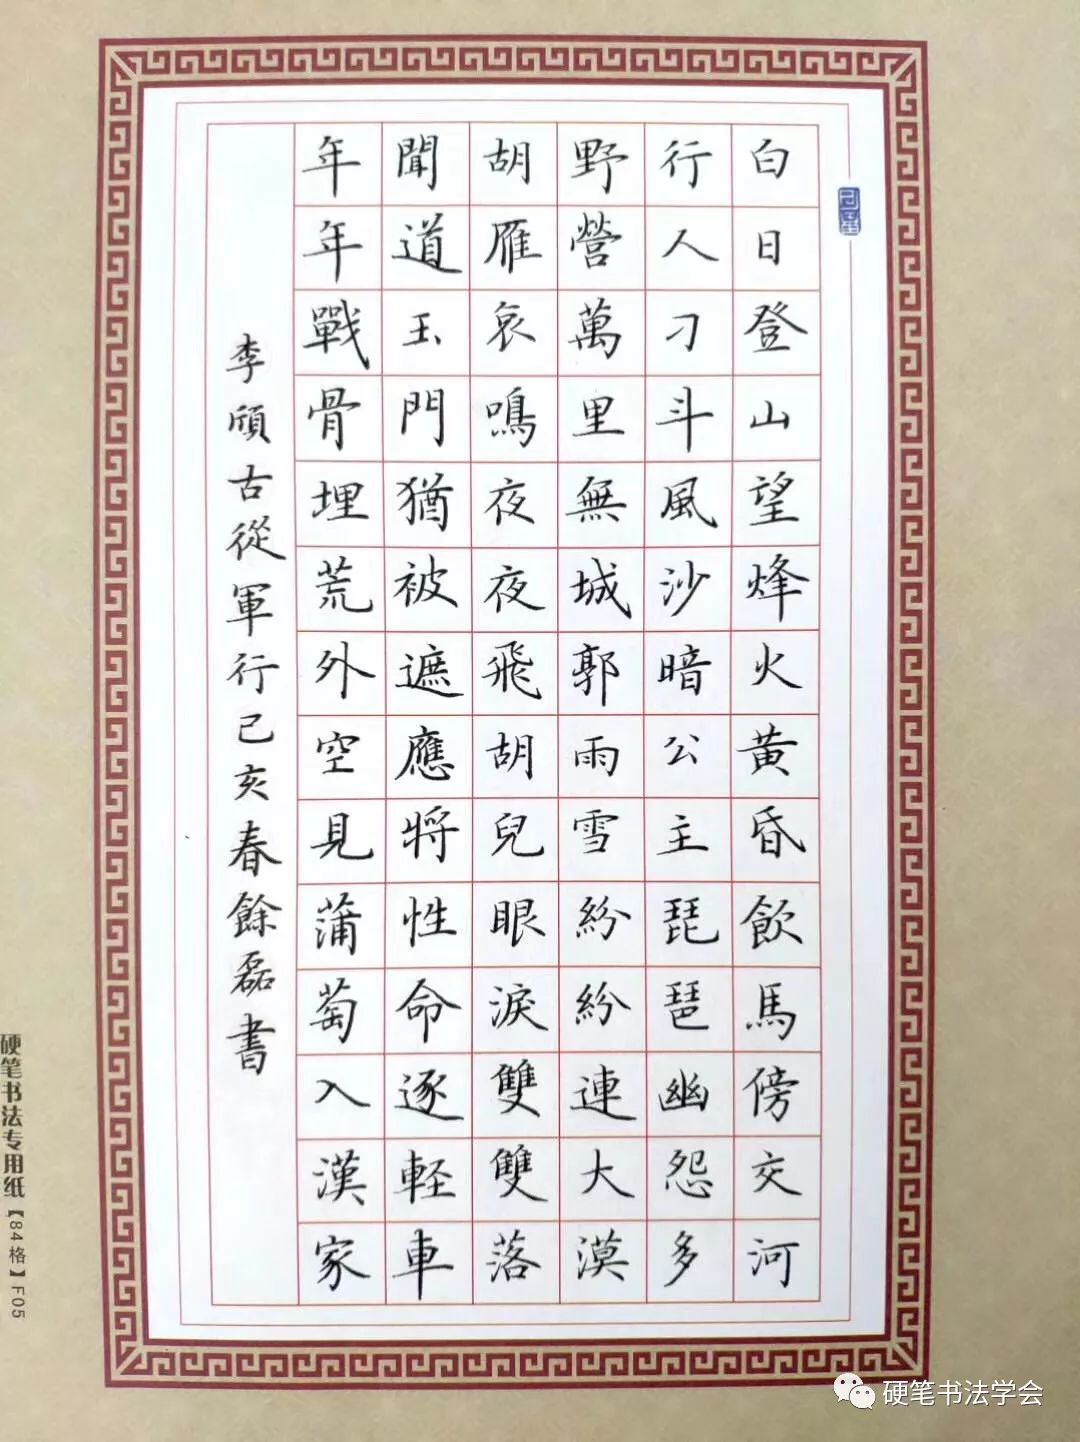 白日登山望烽火黃昏飲馬傍交河
行人刁斗風沙暗公主琵琶幽怨多
野營萬里無城郭雨雪紛紛連大漠
胡雁哀鳴夜夜飛胡兒眼淚雙雙落
聞道玉門猶被遮應將性命逐輕車
年年戰骨埋荒外空見蒲萄入漢家
李頎古從軍行己亥春餘磊書
硬笔书法专用纸【84格】F05
硬笔书法学会